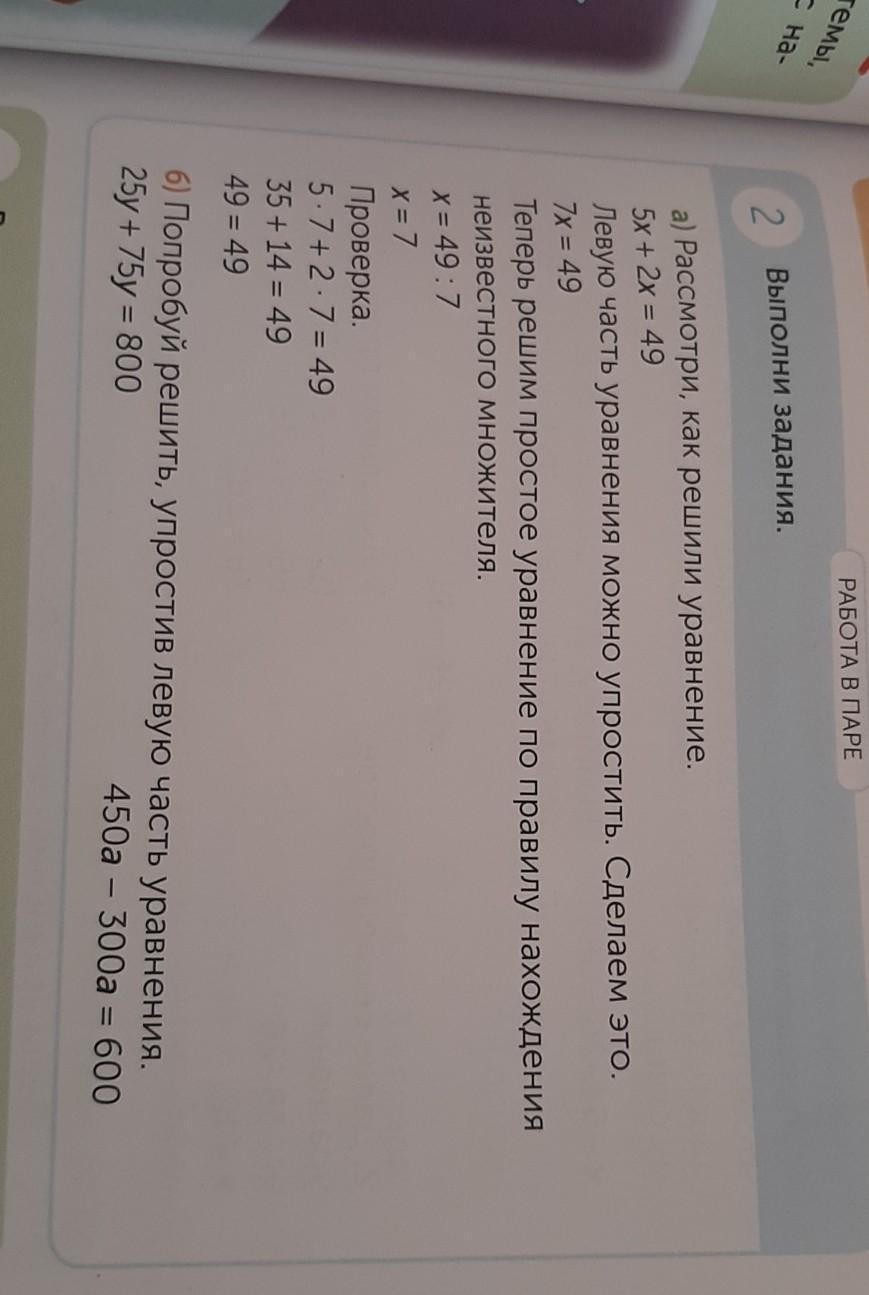 темы,
с на-
РАБОТА В ПАРЕ
2 Выполни задания.
а) Рассмотри, как решили уравнение.
5x + 2x = 49
Левую часть уравнения можно упростить. Сделаем это.
7x = 49
Теперь решим простое уравнение по правилу нахождения
неизвестного множителя.
x = 49 : 7
x = 7
Проверка.
5 · 7 + 2 · 7 = 49
35 + 14 = 49
49 = 49
б) Попробуй решить, упростив левую часть уравнения.
25y + 75y = 800 450a − 300a = 600